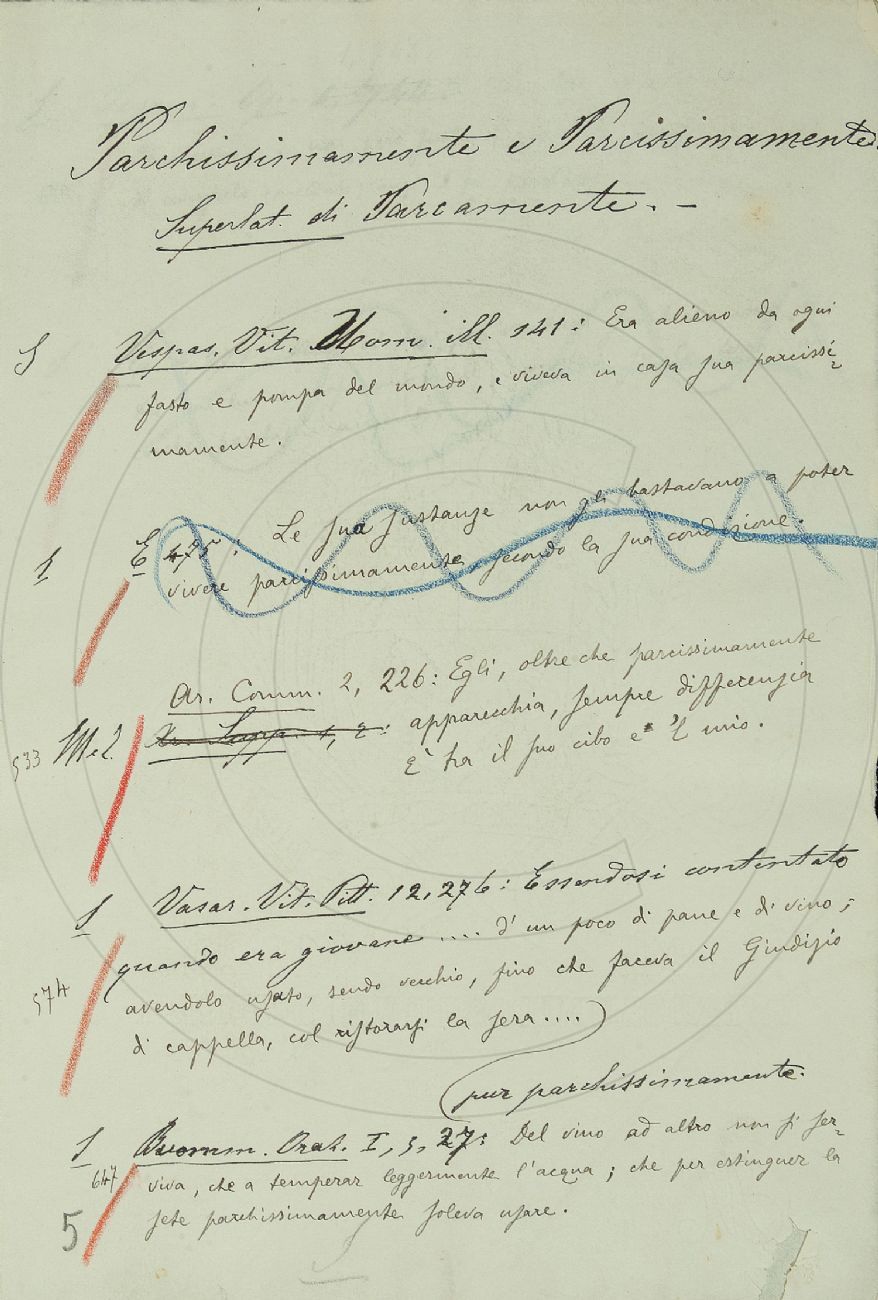 Parchissimamente e Parcissimamente.
Superlat. di Parcamente. -
S Vespas. Vit. Uom. ill. 141: Era alieno da ogni
fasto e pompa del mondo, e viveva in casa sua parcissi-
mamente.
S E 475: Le sua sustanze non gli bastavano a poter
vivere parcissimamente secondo la sua condizione.
Ar. Comm. 2, 226: Egli, oltre che parcissimamente
533 Mel. Ar. Supp. 4, 2: apparecchia, sempre differenzia
È tra il suo cibo e 'l mio.
S Vasar. Vit. Pitt. 12, 276: Essendosi contentato
quando era giovane .... d'un poco di pane e di vino;
574 avendolo usato, sendo vecchio, fino che faceva il Giudizio
di cappella, col ristorarsi la sera....
pur parchissimamente.
S Buomm. Oraz. I, 5, 27: Del vino ad altro non si ser-
647 viva, che a temperar leggermente l'acqua; che per estinguer la
5 sete parchissimamente soleva usare.